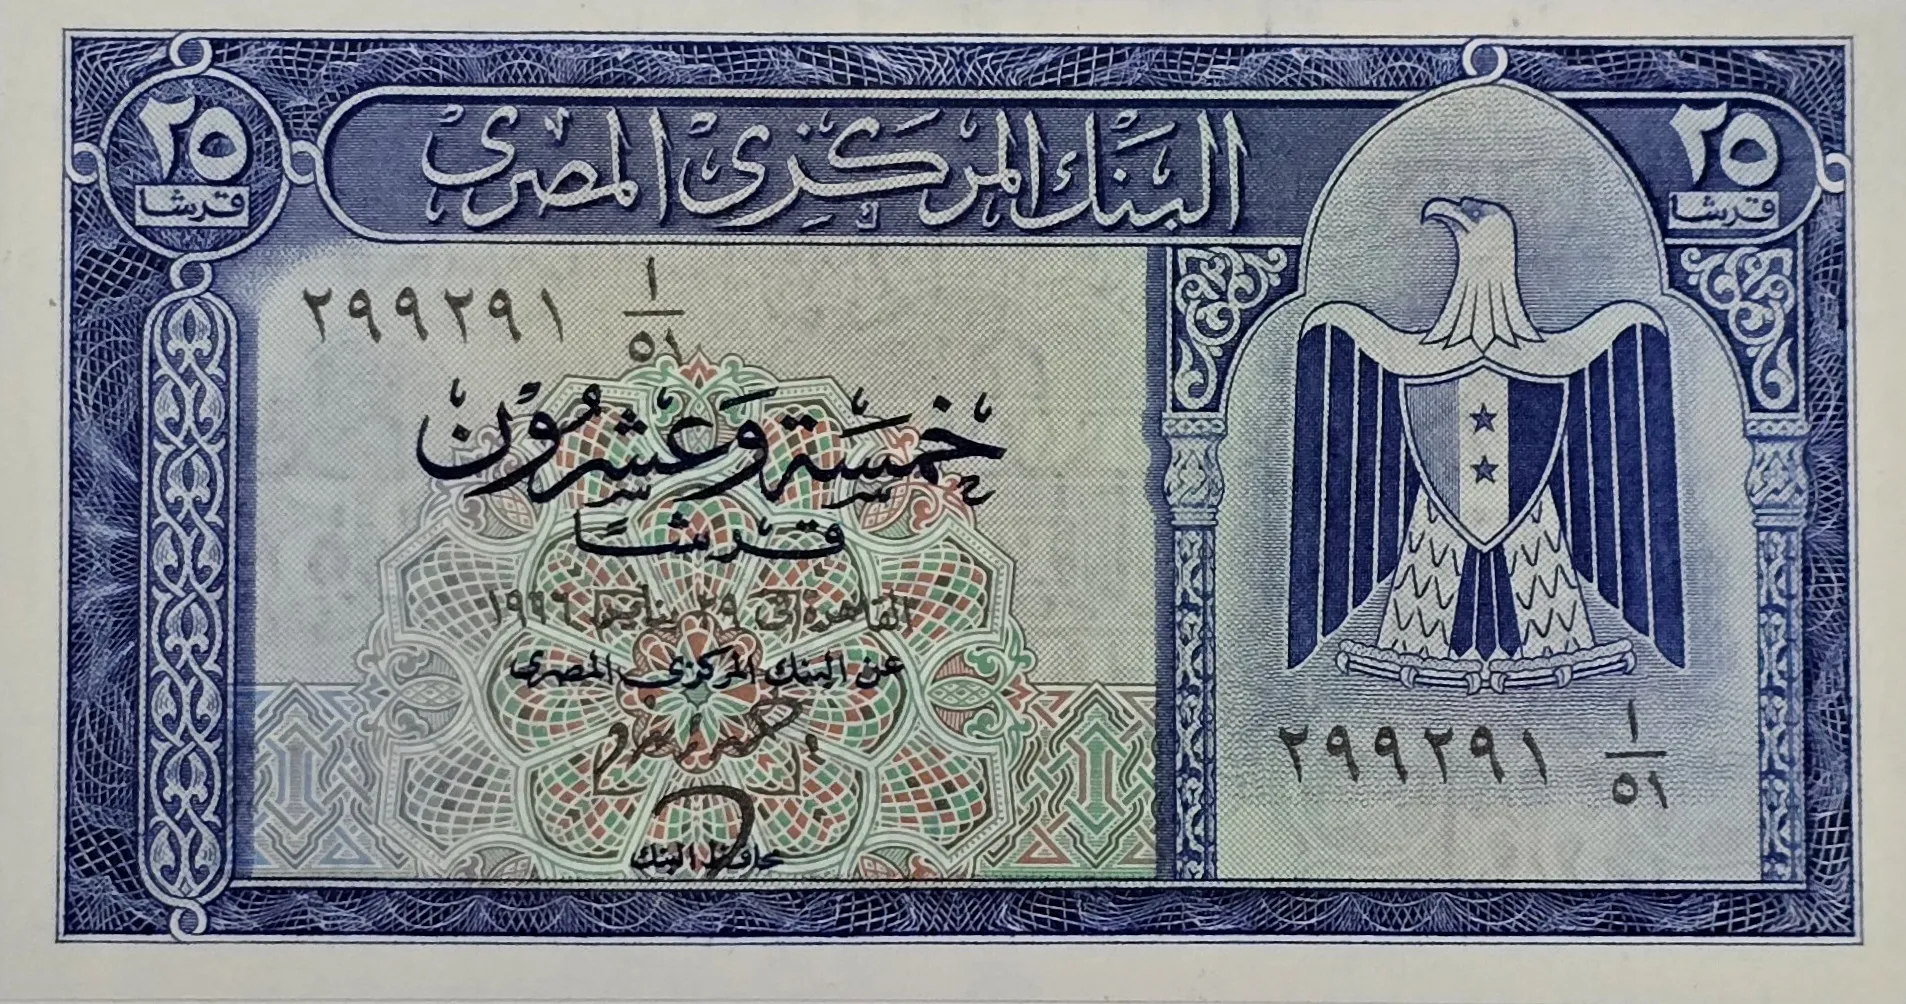 ٢٥
قرشا
البنك المركزي المصري
٢٥
قرشا
١/٥١ ٢٩٩٢٩١
خمسة وعشرون
قرشًا
القاهرة في ٢٩ يناير ١٩٦٦
عن البنك المركزي المصري
محافظ البنك
١/٥١ ٢٩٩٢٩١